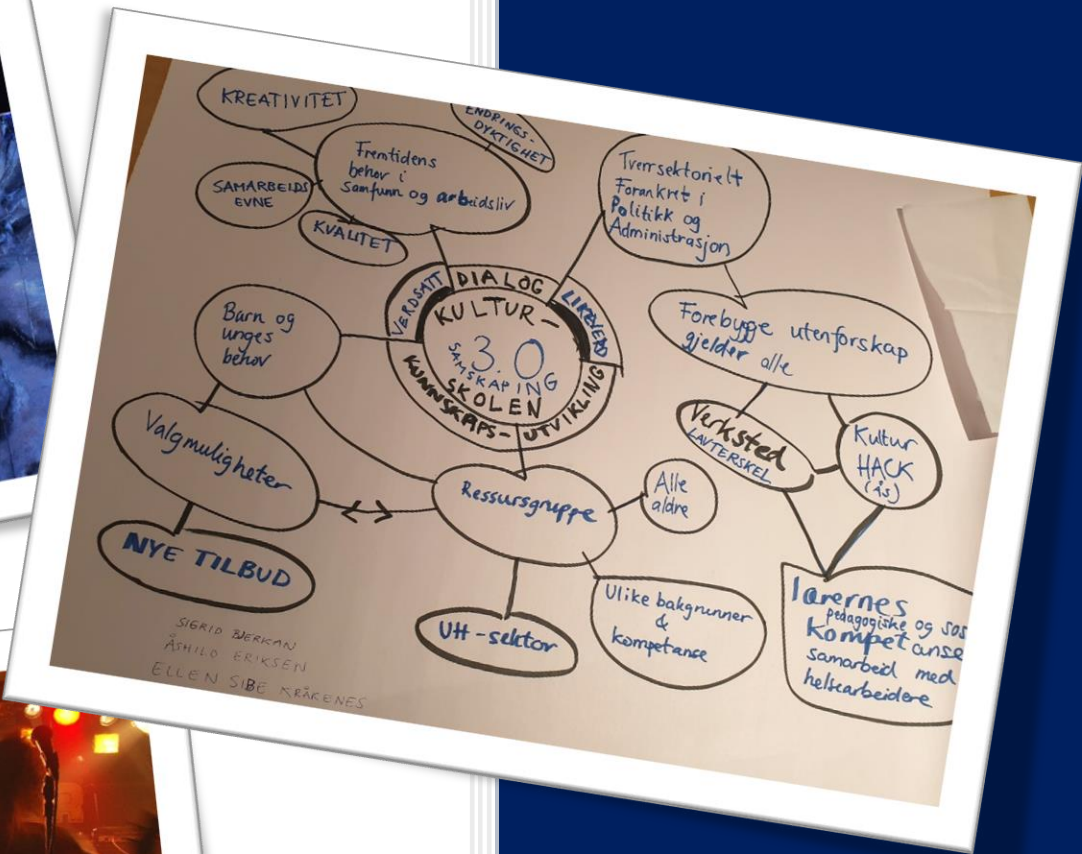 KREATIVITET
ENDRINGS-
DYKTIGHET
Fremtidens
behov i
samfunn og arbeidsliv
SAMARBEIDS
EVNE
KVALITET
Tverrsektorielt
Forankret i
Politikk og
Administrasjon
VERDSATT
DIALOG
LIKEVERD
KUNNSKAPS-
UTVIKLING
KULTUR-
3.0
SAMSKAPING
SKOLEN
Barn og
unges
behov
Forebygge utenforskap
gjelder alle
Valgmuligheter
NYE TILBUD
Ressursgruppe
Alle
aldre
Verksted
LAVTERSKEL
Kultur
HACK
(ås)
UH-sektor
Ulike bakgrunner
&
kompetanse
lærernes
pedagogiske og sos
kompetanse
samarbeid med
helsearbeidere
SIGRID BJERKAN
ÅSHILD ERIKSEN
ELLEN SIBE KRÅKENES